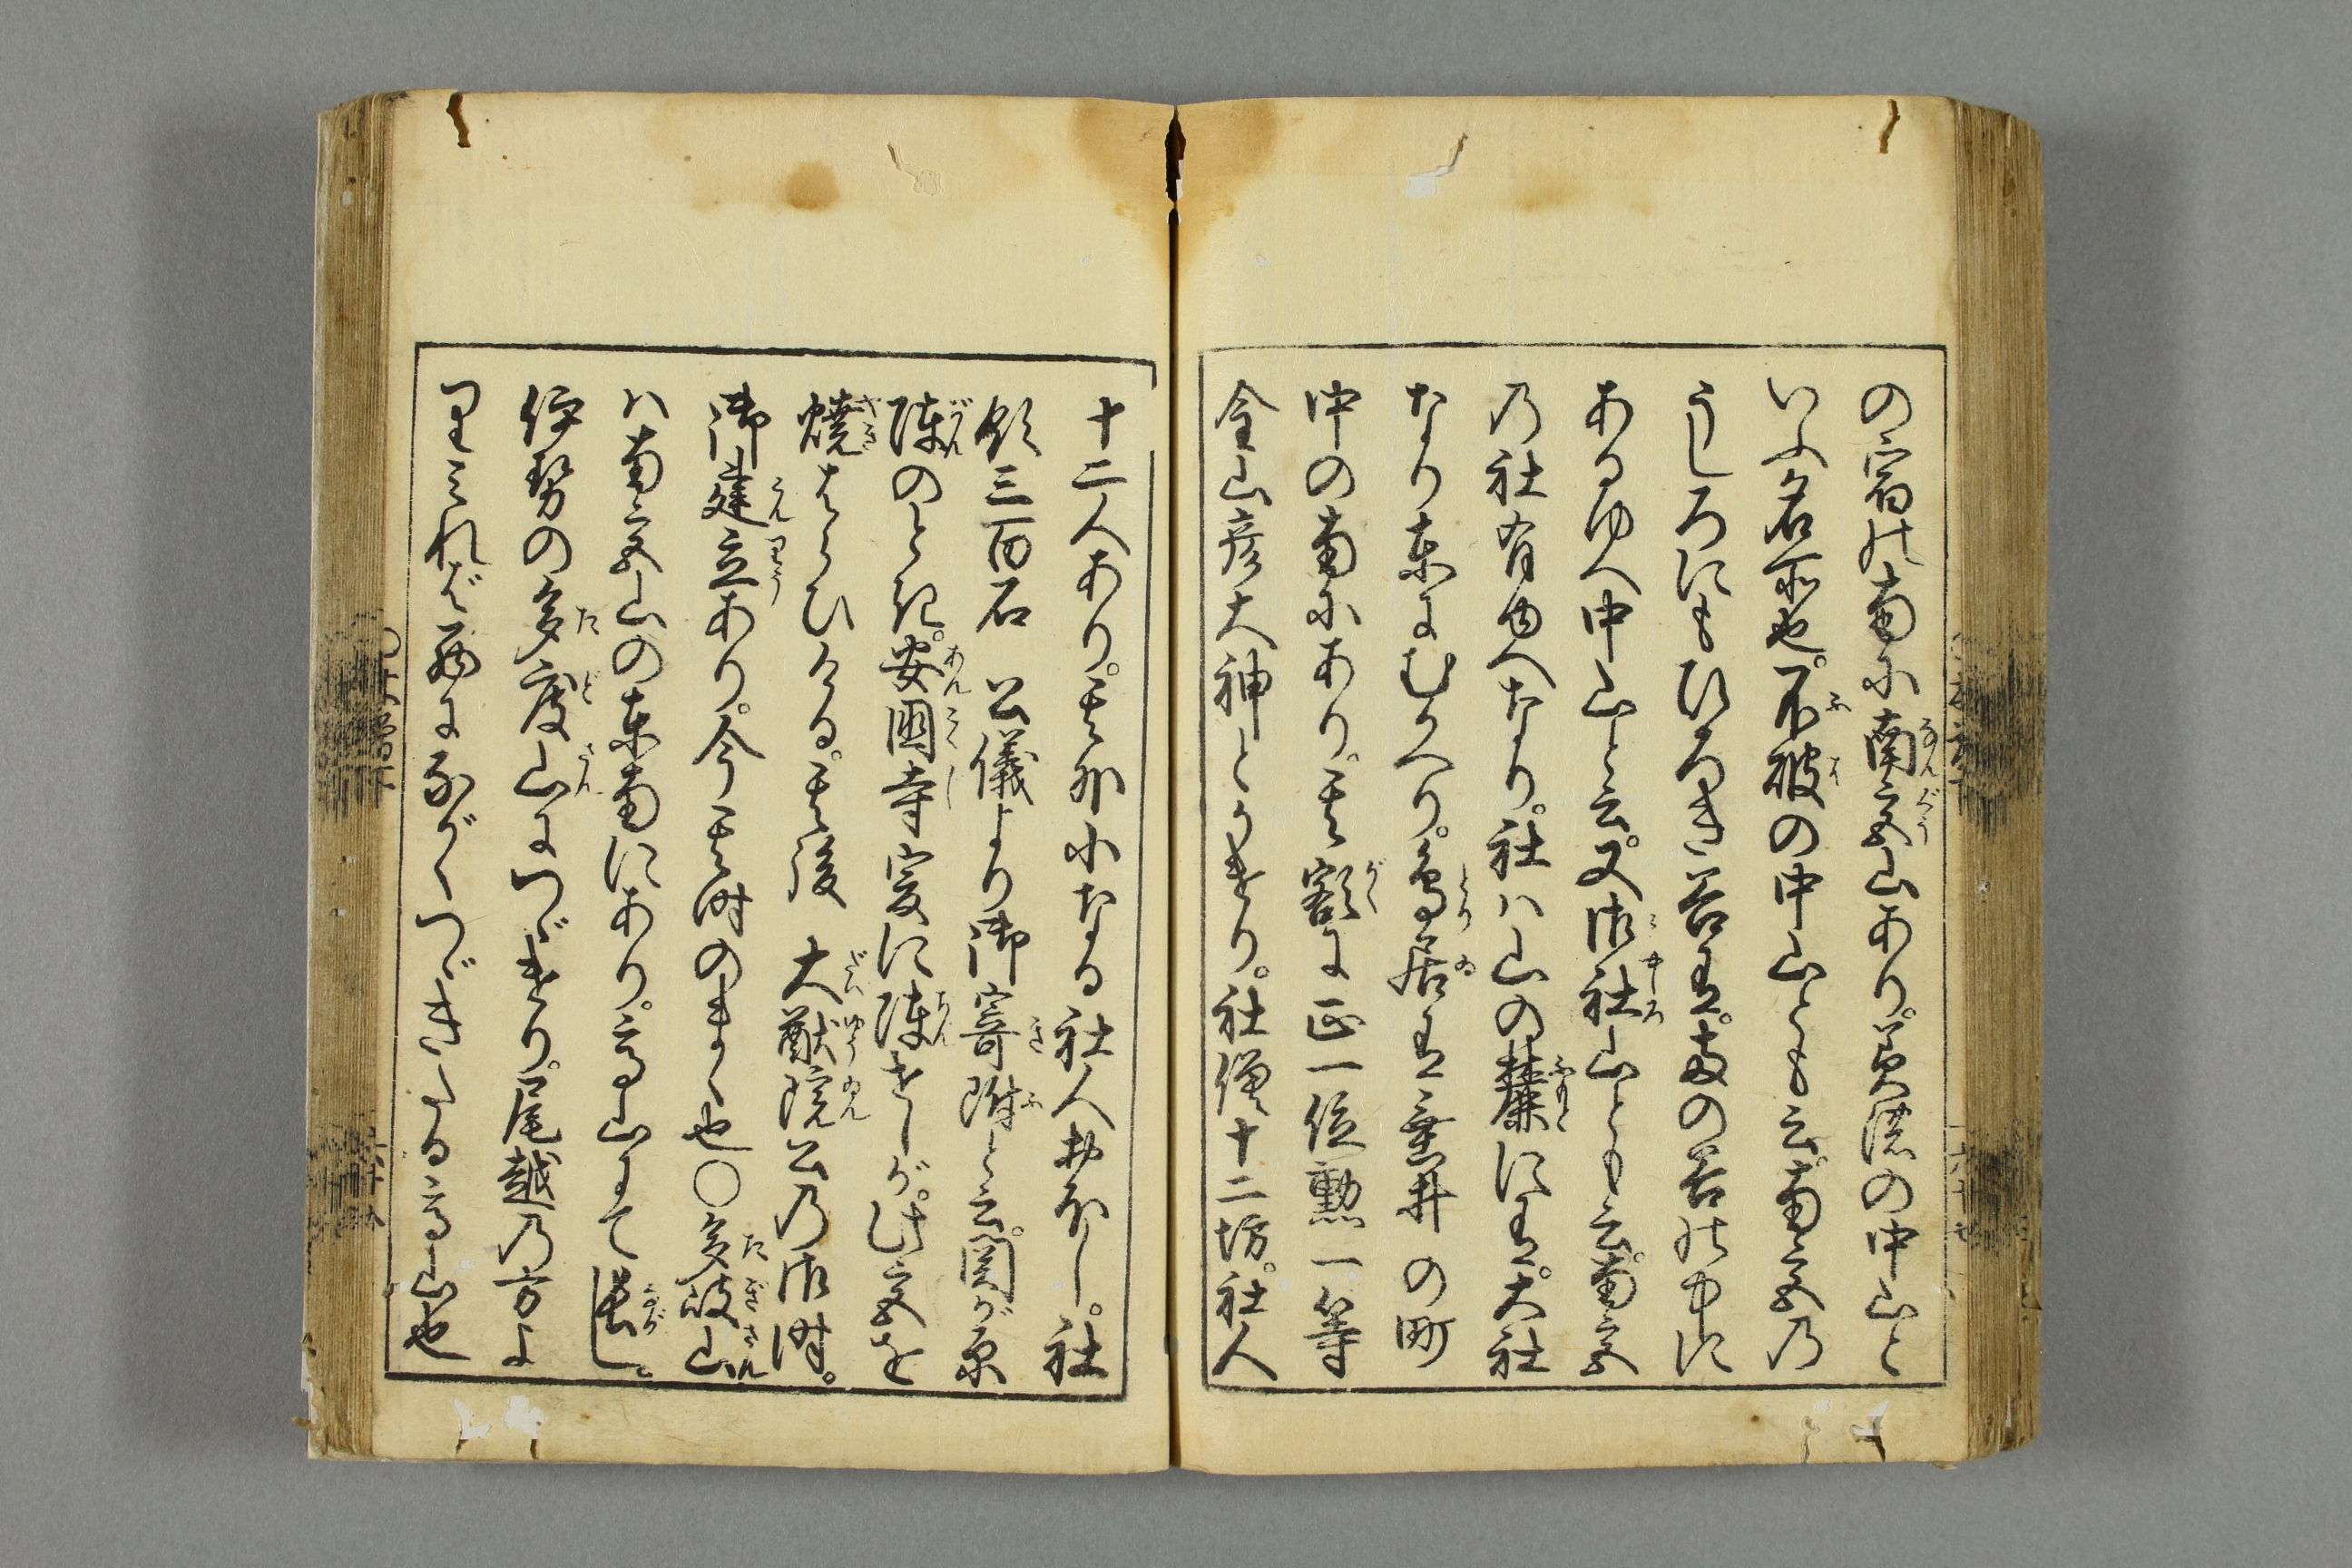 の宿の南に南宮山あり。美濃の中山と
いふ名所也。不破の中山とも云。南宮乃
うしろにもひろき谷有。其の谷の中に
あるゆへ中山と云。又御社山とも云。南宮
乃社有ゆへなり。社ハ山の麓に有。大社
なり東にむかへり。鳥居有垂井の町
中の南にあり。其額に正一位勲一等
金山彦大神とかけり。社僧十二坊。社人
十二人あり。其外小なる社人おほし。社
領三百石 公儀より御寄附と云。関が原
陣のとき。安国寺爰に陣せしが。此宮を
焼はらひける。其後 大猷院公乃御時。
御建立あり。今其時のまゝ也○多岐山
ハ南宮山の東南にあり。高山にて長し。
伊勢の多度山につゞけり。尾越乃方よ
りみれば西にながくつゞきたる高山也